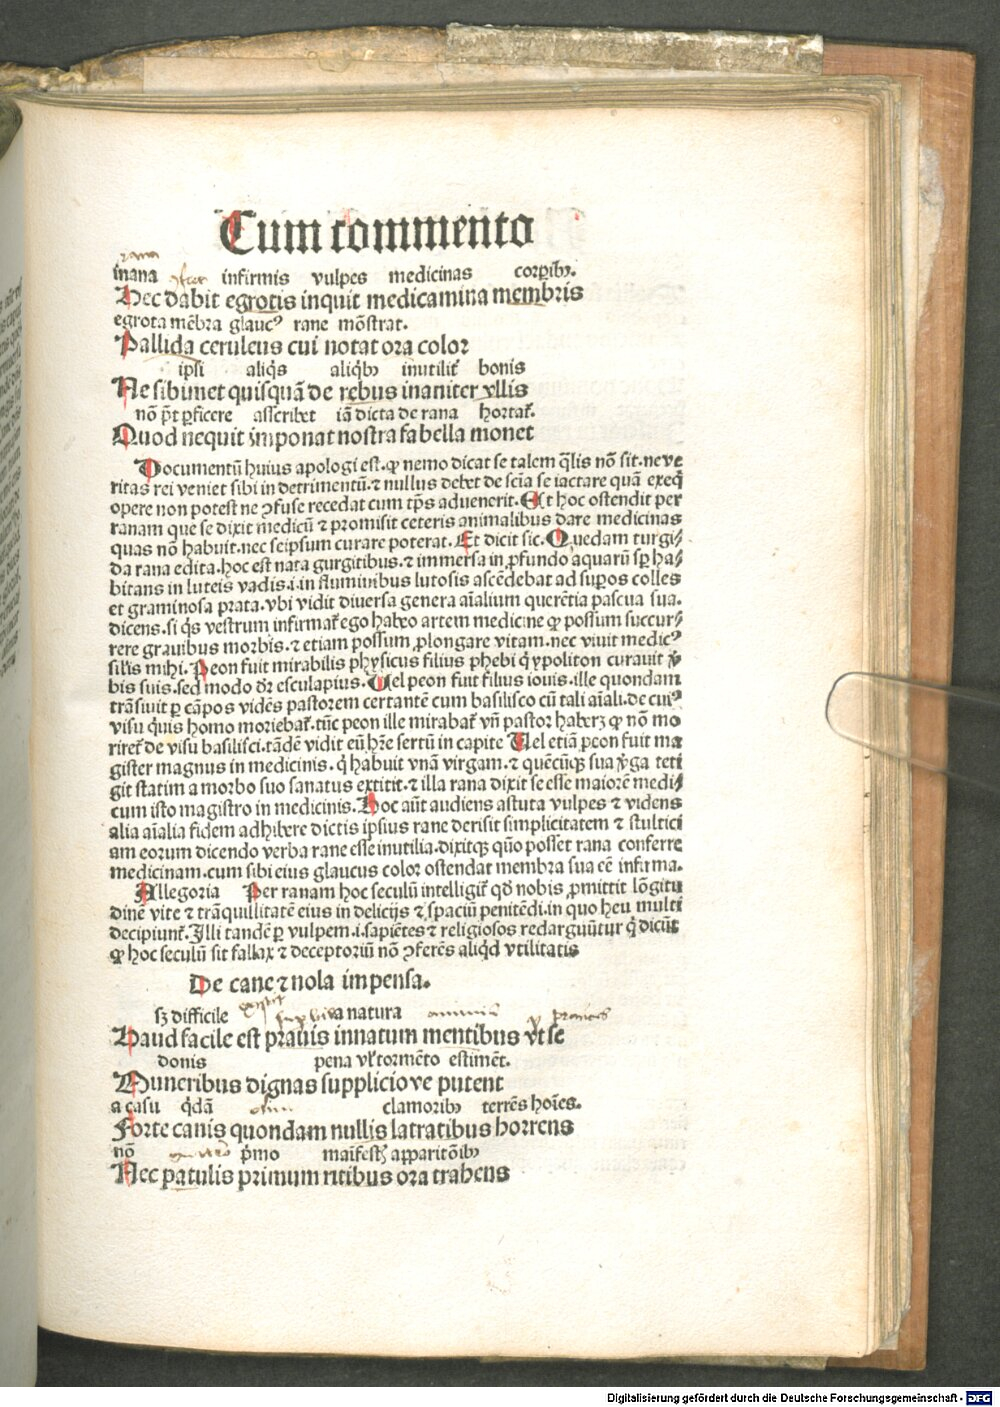 Cum commento
rana
inana infirmis vulpes medicinas corꝑibꝫ.
Hec dabit egrotis inquit medicamina membris
egrota mēbra glaucꝰ rane mōstrat.
Pallida ceruleus cui notat ora color
ipsi aliq̃s aliq̃bꝫ inutilit̃ bonis
Ne sibimet quisquā de rebus inaniter vllis
nō p̃t ꝑficere asscribet iā dicta de rana hortat̃.
Quod nequit imponat nostra fabella monet
Documentū huius apologi est. ꝙ nemo dicat se talem q̃lis nō sit. ne ve
ritas rei veniet sibi in detrimentū. ⁊ nullus debet de scīa se iactare quā exeq̃
opere non potest ne ꝯfuse recedat cum tp̄s aduenerit. Et hoc ostendit per
ranam que se dixit medicū ⁊ promisit ceteris animalibus dare medicinas
quas nō habuit. nec seipsum curare poterat. Et dicit sic. Quedam turgi⸗
da rana edita. hoc est nata gurgitibus. ⁊ immersa in ꝓfundo aquarū sꝑ ha⸗
bitans in luteis vadis. i. in fluminibus lutosis ascēdebat ad suꝑos colles
et graminosa prata. vbi vidit diuersa genera aīalium querētia pascua sua.
dicens. si q̃s vestrum infirmat̃ ego habeo artem medicine ꝙ possum succur⸗
rere grauibus morbis. ⁊ etiam possum ꝓlongare vitam. nec viuit medicꝰ
silis mihi. Peon fuit mirabilis physicus filius phebi q̃ ypoliton curauit v̄
bis suis. sed modo dr̄ esculapius. Uel peon fuit filius iouis. ille quondam
trāsiuit ꝑ cāpos vidēs pastorem certantē cum basilisco cū tali aīali. de cuiꝰ
visu q̃uis homo moriebat̃. tūc peon ille mirabat̃ vn̄ pastor haberꝫ ꝙ nō mo
riret̃ de visu basilisci. tādē vidit eū hr̄e sertū in capite Uel etiā peon fuit ma
gister magnus in medicinis. q̃ habuit vnā virgam. ⁊ quēcūqꝫ sua v̄ga teti
git statim a morbo suo sanatus extitit. ⁊ illa rana dixit se esse maiorē medi⸗
cum isto magistro in medicinis. Hoc aūt audiens astuta vulpes ⁊ videns
alia aīalia fidem adhibere dictis ipsius rane derisit simplicitatem ⁊ stultici
am eorum dicendo verba rane esse inutilia. dixitqꝫ quō posset rana conferre
medicinam. cum sibi eius glaucus color ostendat membra sua eē infirma.
Allegoria Per ranam hoc seculū intelligit̃ qd̄ nobis ꝓmittit lōgitu
dinē vite ⁊ trāquillitatē eius in delicijs ⁊ spaciū penitēdi. in quo heu multi
decipiunt̃. Illi tandē ꝑ vulpem. i. sapiētes ⁊ religiosos redarguūtur q̃ dicūt
ꝙ hoc seculū sit fallax ⁊ deceptoriū nō ꝯferēs aliq̃d vtilitatis
De cane ⁊ nola impensa.
sꝫ difficile a natura
Haud facile est prauis innatum mentibus vt se
donis pena vl̓ tormēto estimēt.
Muneribus dignas supplicioue putent
a casu q̃dā olim clamoribꝫ terrēs hoīes.
Forte canis quondam nullis latratibus horrens
nō p̄mo maīfestꝫ aꝑparitōibꝫ
Nec patulis primum rictibus ora trahens
Digitalisierung gefördert durch die Deutsche Forschungsgemeinschaft - DFG